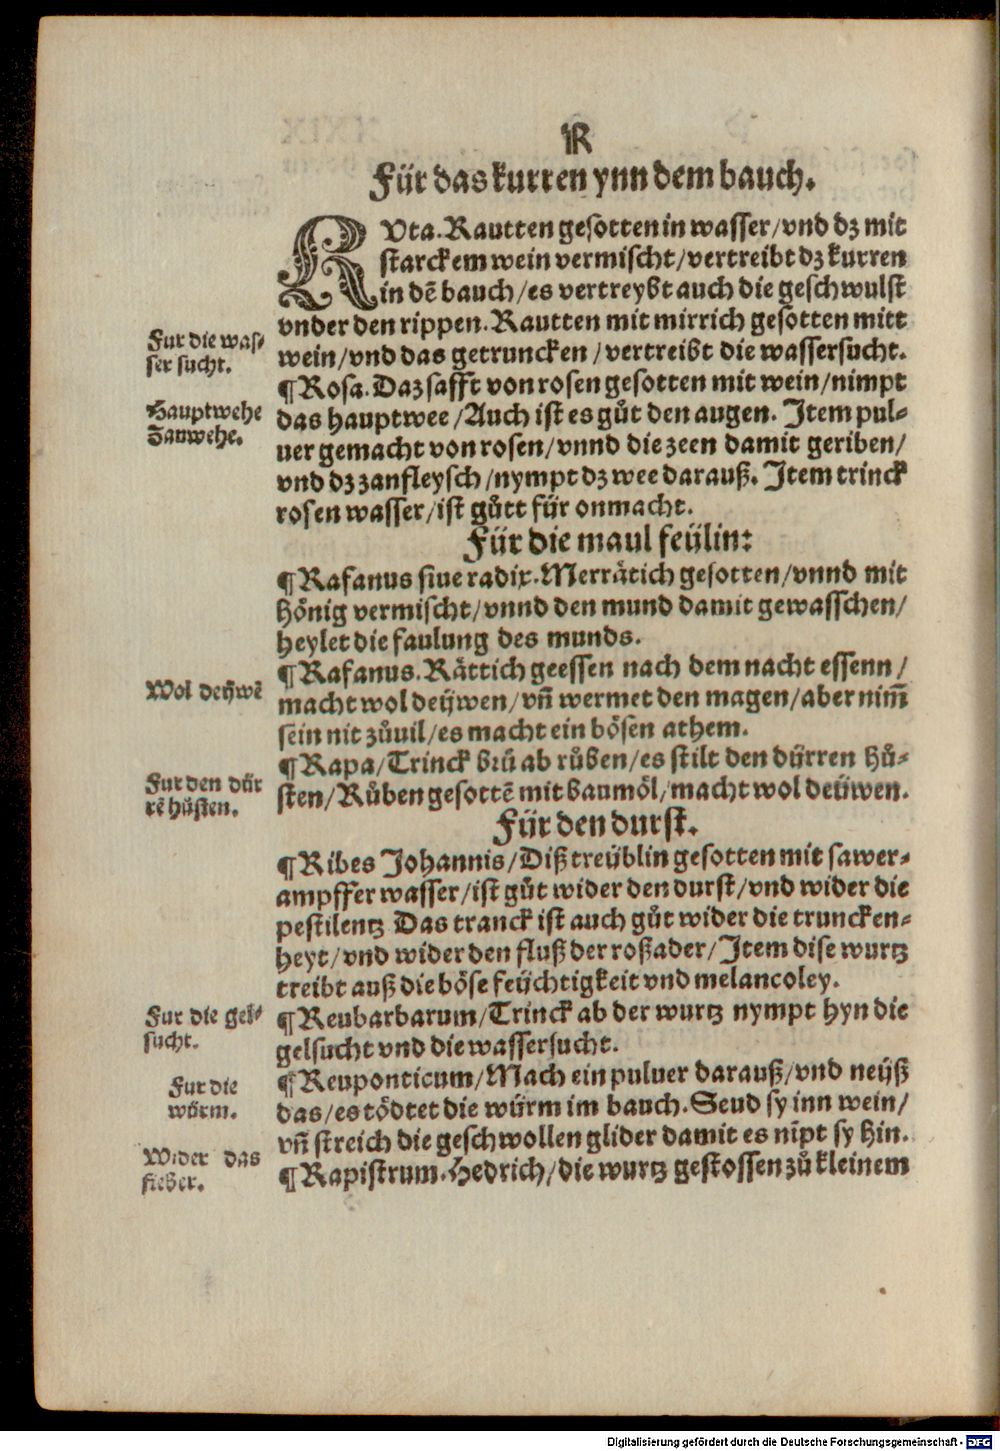 R
Für das kurren ynn dem bauch.
RVta. Rautten gesotten in wasser/vnd dz mit
starckem wein vermischt/vertreibt dz kurren
in dē bauch/es vertreybt auch die geschwulst
vnder den rippen. Rautten mit mirrich gesotten mitt
Fur die was-
ser sucht.
wein/vnd das getruncken/vertreibt die wassersucht.
¶Rosa. Daz safft von rosen gesotten mit wein/nimpt
Hauptwehe
Zanwehe.
das hauptwee/Auch ist es gůt den augen. Item pul-
uer gemacht von rosen/vnnd die zeen damit geriben/
vnd dz zanfleysch/nympt dz wee darauß. Item trinck
rosen wasser/ist gůtt für onmacht.
Für die maul feülin:
¶Rafanus siue radix. Merrätich gesotten/vnnd mit
hönig vermischt/vnnd den mund damit gewasschen/
heylet die faulung des munds.
¶Rafanus. Rättich geessen nach dem nacht essenn/
Wol deÿwē
macht wol deÿwen/vn̄ wermet den magen/aber nim̄
sein nit zůuil/es macht ein bösen athem.
¶Rapa/Trinck brů ab růben/es stilt den dürren hů-
Fur den dür
rē hůsten.
sten/Růben gesottē mit baumöl/macht wol deüwen.
Für den durst.
¶Ribes Johannis/Diß treüblin gesotten mit sawer-
ampffer wasser/ist gůt wider den durst/vnd wider die
pestilentz Das tranck ist auch gůt wider die truncken-
heyt/vnd wider den fluß der roßader/Item dise wurtz
treibt auß die böse feüchtigkeit vnd melancoley.
Fur die gel-
sucht.
¶Reubarbarum/Trinck ab der wurtz nympt hyn die
gelsucht vnd die wassersucht.
Fur die
würm.
¶Reuponticum/Mach ein puluer darauß/vnd neüß
das/es tödtet die würm im bauch. Seud sy inn wein/
vn̄ streich die geschwollen glider damit es nīpt sy hin.
Wider das
fieber.
¶Rapistrum. Hedrich/die wurtz gestossen zů kleinem
Digitalisierung gefördert durch die Deutsche Forschungsgemeinschaft - DFG